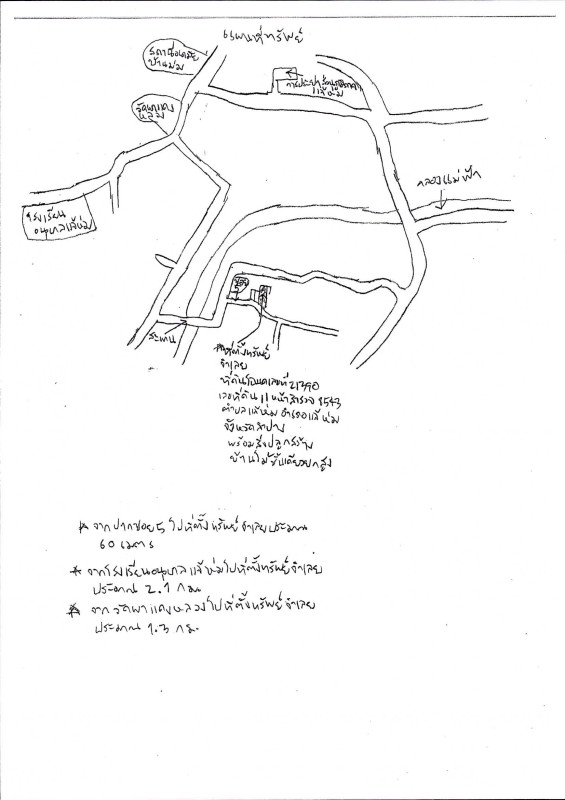 แผนที่ทรัพย์
บ้านม่วง
การประปาส่วนภูมิภาค
แจ้ห่ม
วัดผาแดง
หลวง
คลองแม่ฟ้า
โรงเรียน
อนุบาลแจ้ห่ม
ซอย
5
สะพาน
*ที่ตั้งทรัพย์
จำเลย
ที่ดินโฉนดเลขที่ 21390
เลขที่ดิน 11 หน้าสำรวจ 8543
ตำบลแจ้ห่ม อำเภอแจ้ห่ม
จังหวัดลำปาง
พร้อมสิ่งปลูกสร้าง
บ้านไม้ชั้นเดียวยกสูง
* จากปากซอย 5 ไปที่ตั้งทรัพย์จำเลยประมาณ
60 เมตร
* จากโรงเรียนอนุบาลแจ้ห่มไปที่ตั้งทรัพย์จำเลย
ประมาณ 2.1 กม
* จากวัดผาแดงหลวงไปที่ตั้งทรัพย์จำเลย
ประมาณ 1.3 กม.